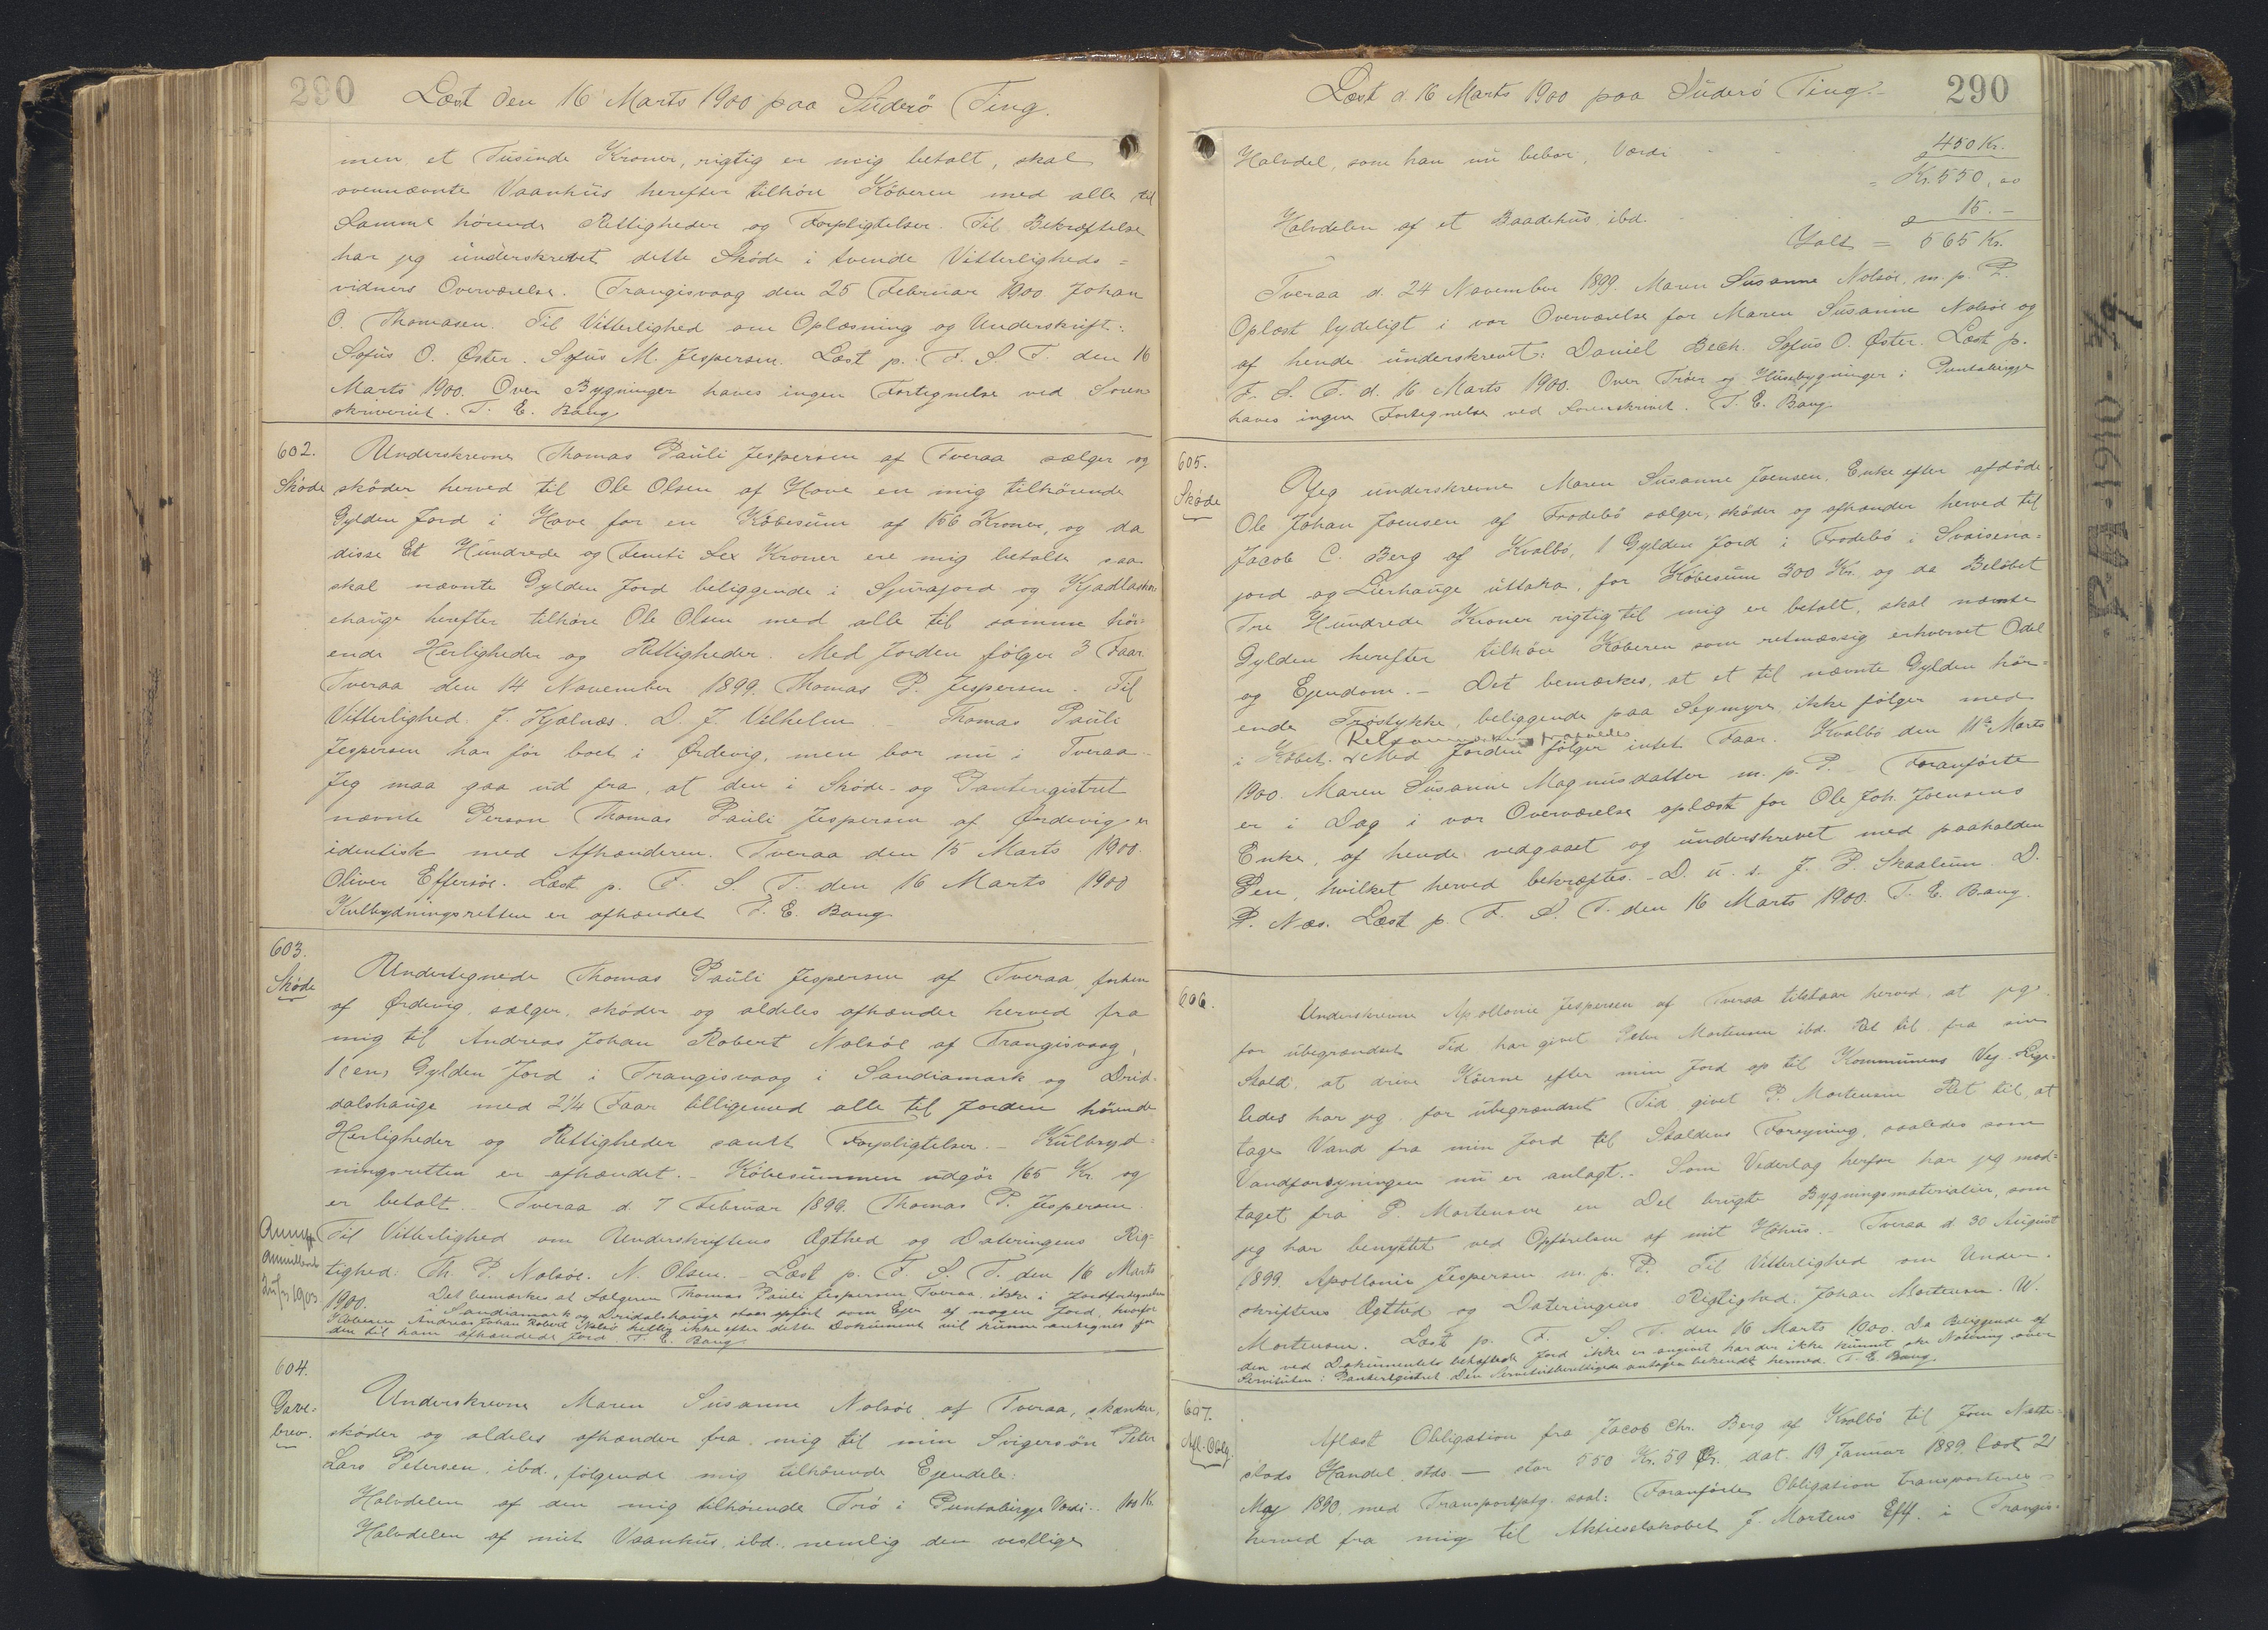 290
Læst den 16 Marts 1900 paa Süderö Ting.
men et Tusinde Kroner, rigtig er mig betalt, skal
ovennævnte Vaanhüs herefter tilhöre Köberen med alle til
Samme hörende Rettigheder og Forpligtelser. Til Bekræftelse
har jeg ünderskrevet dette Sköde i tvende Vitterligheds=
vidners Overværelse. Trangisvaag den 25 Februar 1900 Johan
O. Thomasen. Til Vitterlighed om Oplæsning og Underskrift:
Sofüs O. Öster. Sofüs M. Jespersen. Læst p. F. S. T. den 16
Marts 1900. Over Bygninger haves ingen Fortegnelse ved Soren
skriveriet. T. E. Bang
602.
Sköde
Underskrevne Thomas Paüli Jespersen af Tveraa sælger og
sköder herved til Ole Olsen af Hove en mig tilhörende
Gylden Jord i Hove for en Köbesüm af 156 Kroner, og da
disse Et Hündrede og Femti Sex Kroner ere mig betalte saa
skal nævnte Gylden Jord beliggende i Spurajord og
ehaüge herefter tilhöre Ole Olsen med alle til samme hör=
ende Herligheder og Rettigheder. Med Jorden fölger 3 Faar
Tveraa den 14 November 1899. Thomas P. Jespersen. Til
Vitterlighed. J. Kjælnæs. D. J. Vilhelm – Thomas Paüli
Jespersen har för boet i Ördevig, men bor nü i Tveraa –
Jeg maa gaa üd fra, at den i Sköde- og Panteregistret
nævnte Person Thomas Paüli Jespersen af Ördevig er
identisk med Afhænderen. Tveraa den 15 Marts 1900.
Oliver Effersöe. Læst p. F. S. T. den 16 Marts 1900
Kulbrydningsretten er afhændet T. E. Bang
603.
Sköde
Undertegnede Thomas Paüli Jespersen af Tveraa forhen
af Ördevig, sælger, sköder og aldeles afhænder herved fra
mig til Andreas Johan Robert Nolsöe af Trangisvaag,
1 (en) Gylden Jord i Trangisvaag i Sandiamark og Drid=
dalshaüge med 2 1/4 Faar tilligemed alle til Jorden hörende
Herligheder og Rettigheder samt Forpligtelser. – Külbryd=
ningsretten er afhændet. – Köbesümmen udgör 165 Kr. og
er betalt. Tveraa d. 7 Februar 1899. Thomas P. Jespersen.
Til Vitterlighed om Underskriftens Ægthed og Dateringens Rig=
tighed: Th. P. Nolsöe. N. Olsen. – Læst p. F. S. T. den 16 Marts
1900. Det bemærkes at Sælgeren Thomas Pauli Jespersen Tveraa ikke i Jordfortegnelsen
i Sandiamark og Dridalshauge staar opfört som Ejer af nogen Jord, hvorfor
Köberen Andreas Johan Robert Nolsö heller ikke efter dette Dokument vil kunne antegnes for
den til ham afhændede Jord. T. E. Bang
604.
Gave=
brev.
Underskrevne Maren Susanne Nolsöe af Tveraa, skænker,
sköder og aldeles afhænder fra mig til min Svigersön Peter
Lars Petersen. ibd., fölgende mig tilhörende Ejendele:
Halvdelen af den mig tilhörende Trö i Püntabirgje Værdi – 100 Kr.
Halvdelen af mit Vaanhüs ibd. nemlig den vestlige
Læst d 16 Marts 1900 paa Süderö Ting –
290
Halvdel, som han nü bebor, Værdi 450 Kr.
= Kr. 550,00
Halvdelen af et Baadehüs ibd. 15. –
Ialt = 565 Kr.
Tveraa d. 24 November 1899. Maren Susanne Nolsöe. m. p. P.
Oplæst lydeligt i vor Overværelse for Maren Susanne Nolsöe og
af hende ünderskrevet: Daniel Bech. Sofus O. Öster. Læst p.
F. S. T. d. 16 Marts 1900. Over Tröer og Hüsebygninger i Puntabirgje
haves ingen Fortegnelse ved Sorenskrivet. T. E. Bang
605.
Sköde
Jeg ünderskrevne Maren Susanne Joensen, Enke efter afdöde
Ole Johan Joensen af Frodebö sælger, sköder og afhænder herved til
Jacob C. Berg af Kvalbö, 1 Gylden Jord i Frodebö i Svaisena=
jord og Lierhauge üttaka, for Köbesüm 300 Kr. og da Belöbet
Tre Hündrede Kroner rigtig til mig er betalt, skal nævnte
Gylden herefter tilhöre Köberen som retmæssig erhvervet Odel
og Ejendom. – Det bemærkes, at et til nævnte Gylden hör=
ende Tröstykke, beliggende paa Seymyre, ikke fölger med
i Köbet. Med Jorden fölger intet Faar. Kvalbö den 11te Marts
1900. Maren Susanne Magnusdatter m. p. P. – Foranförte
er i Dag i vor Overværelse oplæst for Ole Joh. Joensens
Enke, af hende vedgaaet og ünderskrevet med paaholden
Pen, hvilket herved bekræftes. – D. ü. s. J. P. Skaalum. D.
P. Næs. Læst p. F. S. T. den 16 Marts 1900. T. E. Bang.
606.
Underskrevne Apollonie Jespersen af Tveraa tilstaar herved, at jeg
for übegrændset Tid har givet Peter Mortensen ibd. Ret til fra sin
Stald, at drive Köerne efter min Jord op til Kommünens Vej. Lige=
ledes har jeg for übegrændset Tid givet P. Mortensen Ret til at
tage Vand fra min Jord til Staldens Forsyning, saaledes som
Vandforsyningen nü er anlagt. – Som Vederlag herfor har jeg mod=
taget fra P. Mortensen en Del brugte Bygningsmaterialier, som
jeg har benyttet ved Opförelsen af mit Höhus. – Tveraa d 30 August
1899. Apollonie Jespersen m. p. P. Til Vitterlighed om Under=
skriftens Ægthed og Dateringens Rigtighed: Johan Mortensen. W.
Mortensen. Læst p. F. S. T. den 16 Marts 1900. Da Beliggende af
den ved Dokumentets behæftede Jord ikke er angivet har der ikke kunnet ske Notering over
Servituten i Panteregistret. Den Servitutberettigede antages bekendt hermed. T. E. Bang
607.
Afl. Oblg.
Aflæst Obligation fra Jacob Chr. Berg af Kvalbö til Joen
stads Handel stds. – stor 550 Kr. 59 Ör, dat. 19 Januar 1889, læst 21
Maj 1890, med Transportptg. saal: Foranförte Obligation transporteres
herved fra mig til Aktieselskabet J. Mortens Eftf. i Trangis=